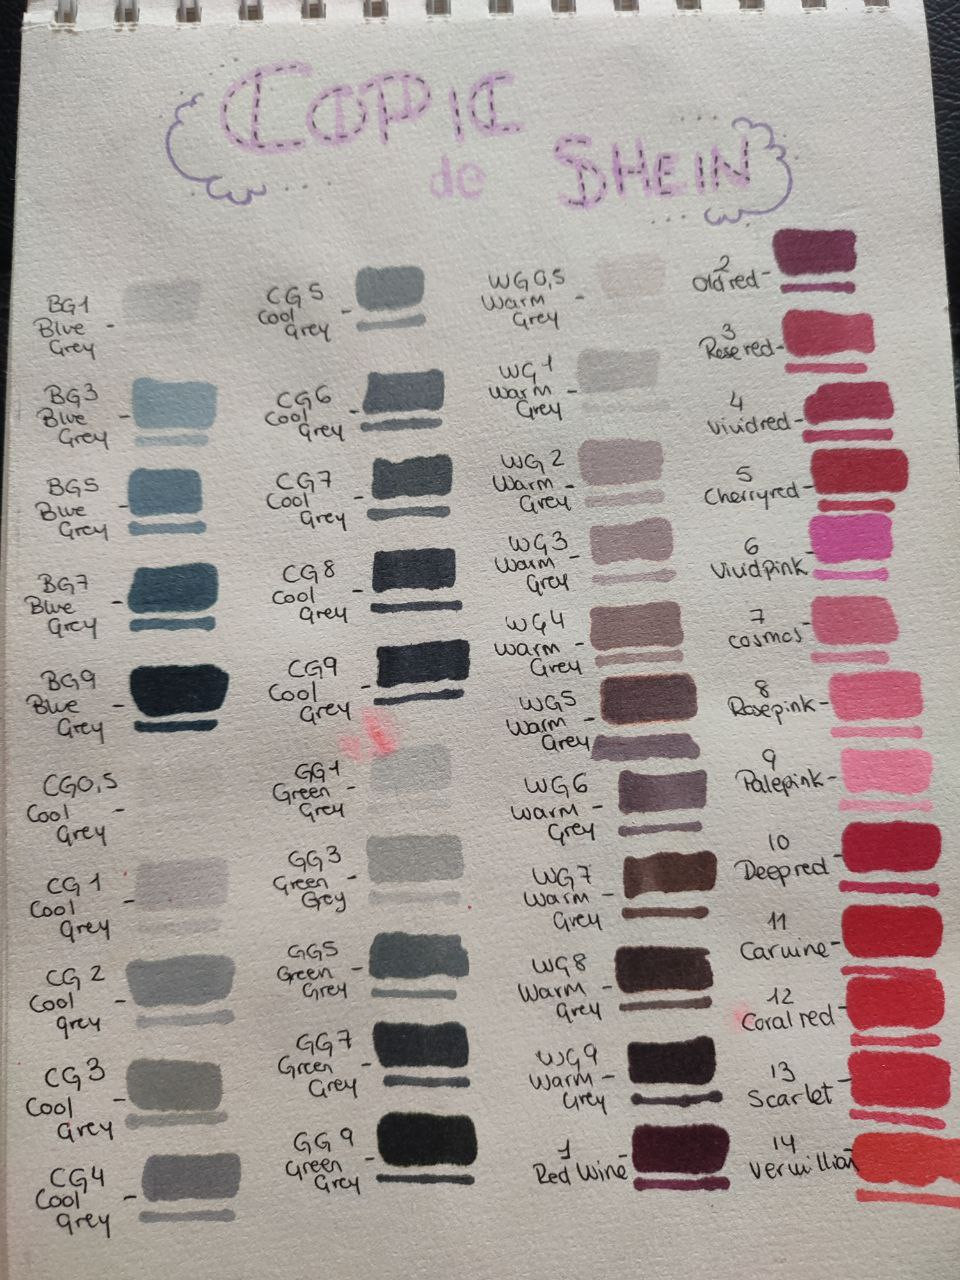 COPIC
de SHEIN
BG1
Blue
Grey
BG3
Blue
Grey
BG5
Blue
Grey
BG7
Blue
Grey
BG9
Blue
Grey
CG0,5
Cool
Grey
CG1
Cool
Grey
CG2
Cool
Grey
CG3
Cool
Grey
CG4
Cool
Grey
CG5
Cool
Grey
CG6
Cool
Grey
CG7
Cool
Grey
CG8
Cool
Grey
CG9
Cool
Grey
GG1
Green
Grey
GG3
Green
Grey
GG5
Green
Grey
GG7
Green
Grey
GG9
Green
Grey
WG0,5
Warm
Grey
WG1
Warm
Grey
WG2
Warm
Grey
WG3
Warm
Grey
WG4
Warm
Grey
WG5
Warm
Grey
WG6
Warm
Grey
WG7
Warm
Grey
WG8
Warm
Grey
WG9
Warm
Grey
1
Red Wine
2
Old red
3
Rose red
4
Vividred
5
Cherryred
6
Vividpink
7
Cosmos
8
Rosepink
9
Palepink
10
Deepred
11
Carwine
12
Coral red
13
Scarlet
14
Vermillian